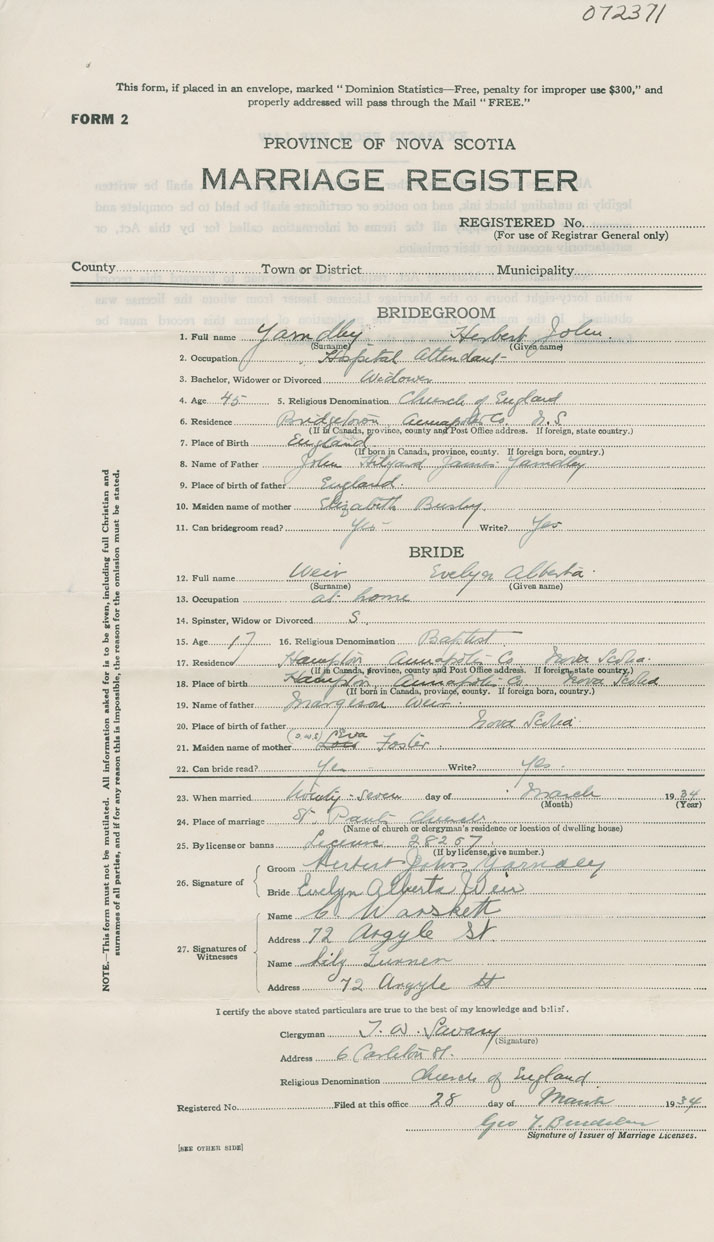 072371
This form, if placed in an envelope, marked "Dominion Statistics—Free, penalty for improper use $300," and
properly addressed will pass through the Mail "FREE."
FORM 2
PROVINCE OF NOVA SCOTIA
MARRIAGE REGISTER
REGISTERED No.
(For use of Registrar General only)
County Town or District Municipality
BRIDEGROOM
1. Full name Yarndley Herbert John.
(Surname) (Given name)
2. Occupation Hospital Attendant
3. Bachelor, Widower or Divorced Widower
4. Age 45 5. Religious Denomination Church of England
6. Residence Bridgetown Annapolis Co. N.S
(If in Canada, province, county and Post Office address. If foreign, state country.)
7. Place of Birth England
(If born in Canada, province, county. If foreign born, country.)
8. Name of Father John James Yarndley
9. Place of birth of father England.
10. Maiden name of mother Elizabeth Busby.
11. Can bridegroom read? Yes Write? Yes
BRIDE
12. Full name Weir Evelyn Alberta.
(Surname) (Given name)
13. Occupation at home
14. Spinster, Widow or Divorced S.
15. Age 17 16. Religious Denomination Baptist
17. Residence Hampton Annapolis Co Nova Scotia.
(If in Canada, province, county and Post Office address. If foreign, state country.)
18. Place of birth Hampton Annapolis Co Nova Scotia
(If born in Canada, province, county. If foreign born, country.)
19. Name of father Margeson Weir.
20. Place of birth of father Nova Scotia
21. Maiden name of mother Eva Foster.
22. Can bride read? Yes Write? Yes.
23. When married twenty-seven day of March 1934
(Month) (Year)
24. Place of marriage St. Paul's Church
(Name of church or clergyman's residence or location of dwelling house)
25. By license or banns License 28267.
(If by license, give number.)
26. Signature of
Groom Herbert John Yarndley
Bride Evelyn Alberta Weir
27. Signatures of Witnesses
Name C. Warskett
Address 72 Argyle St.
Name Lily Turner
Address 72 Argyle St
I certify the above stated particulars are true to the best of my knowledge and belief.
Clergyman T. W. Savary
(Signature)
Address 6 Carleton St.
Religious Denomination Church of England
Registered No. Filed at this office 28 day of March 1934
Geo
Signature of Issuer of Marriage Licenses.
[SEE OTHER SIDE]
NOTE.—This form must not be mutilated. All information asked for is to be given, including full Christian and
surnames of all parties, and if for any reason this is impossible, the reason for the omission must be stated.